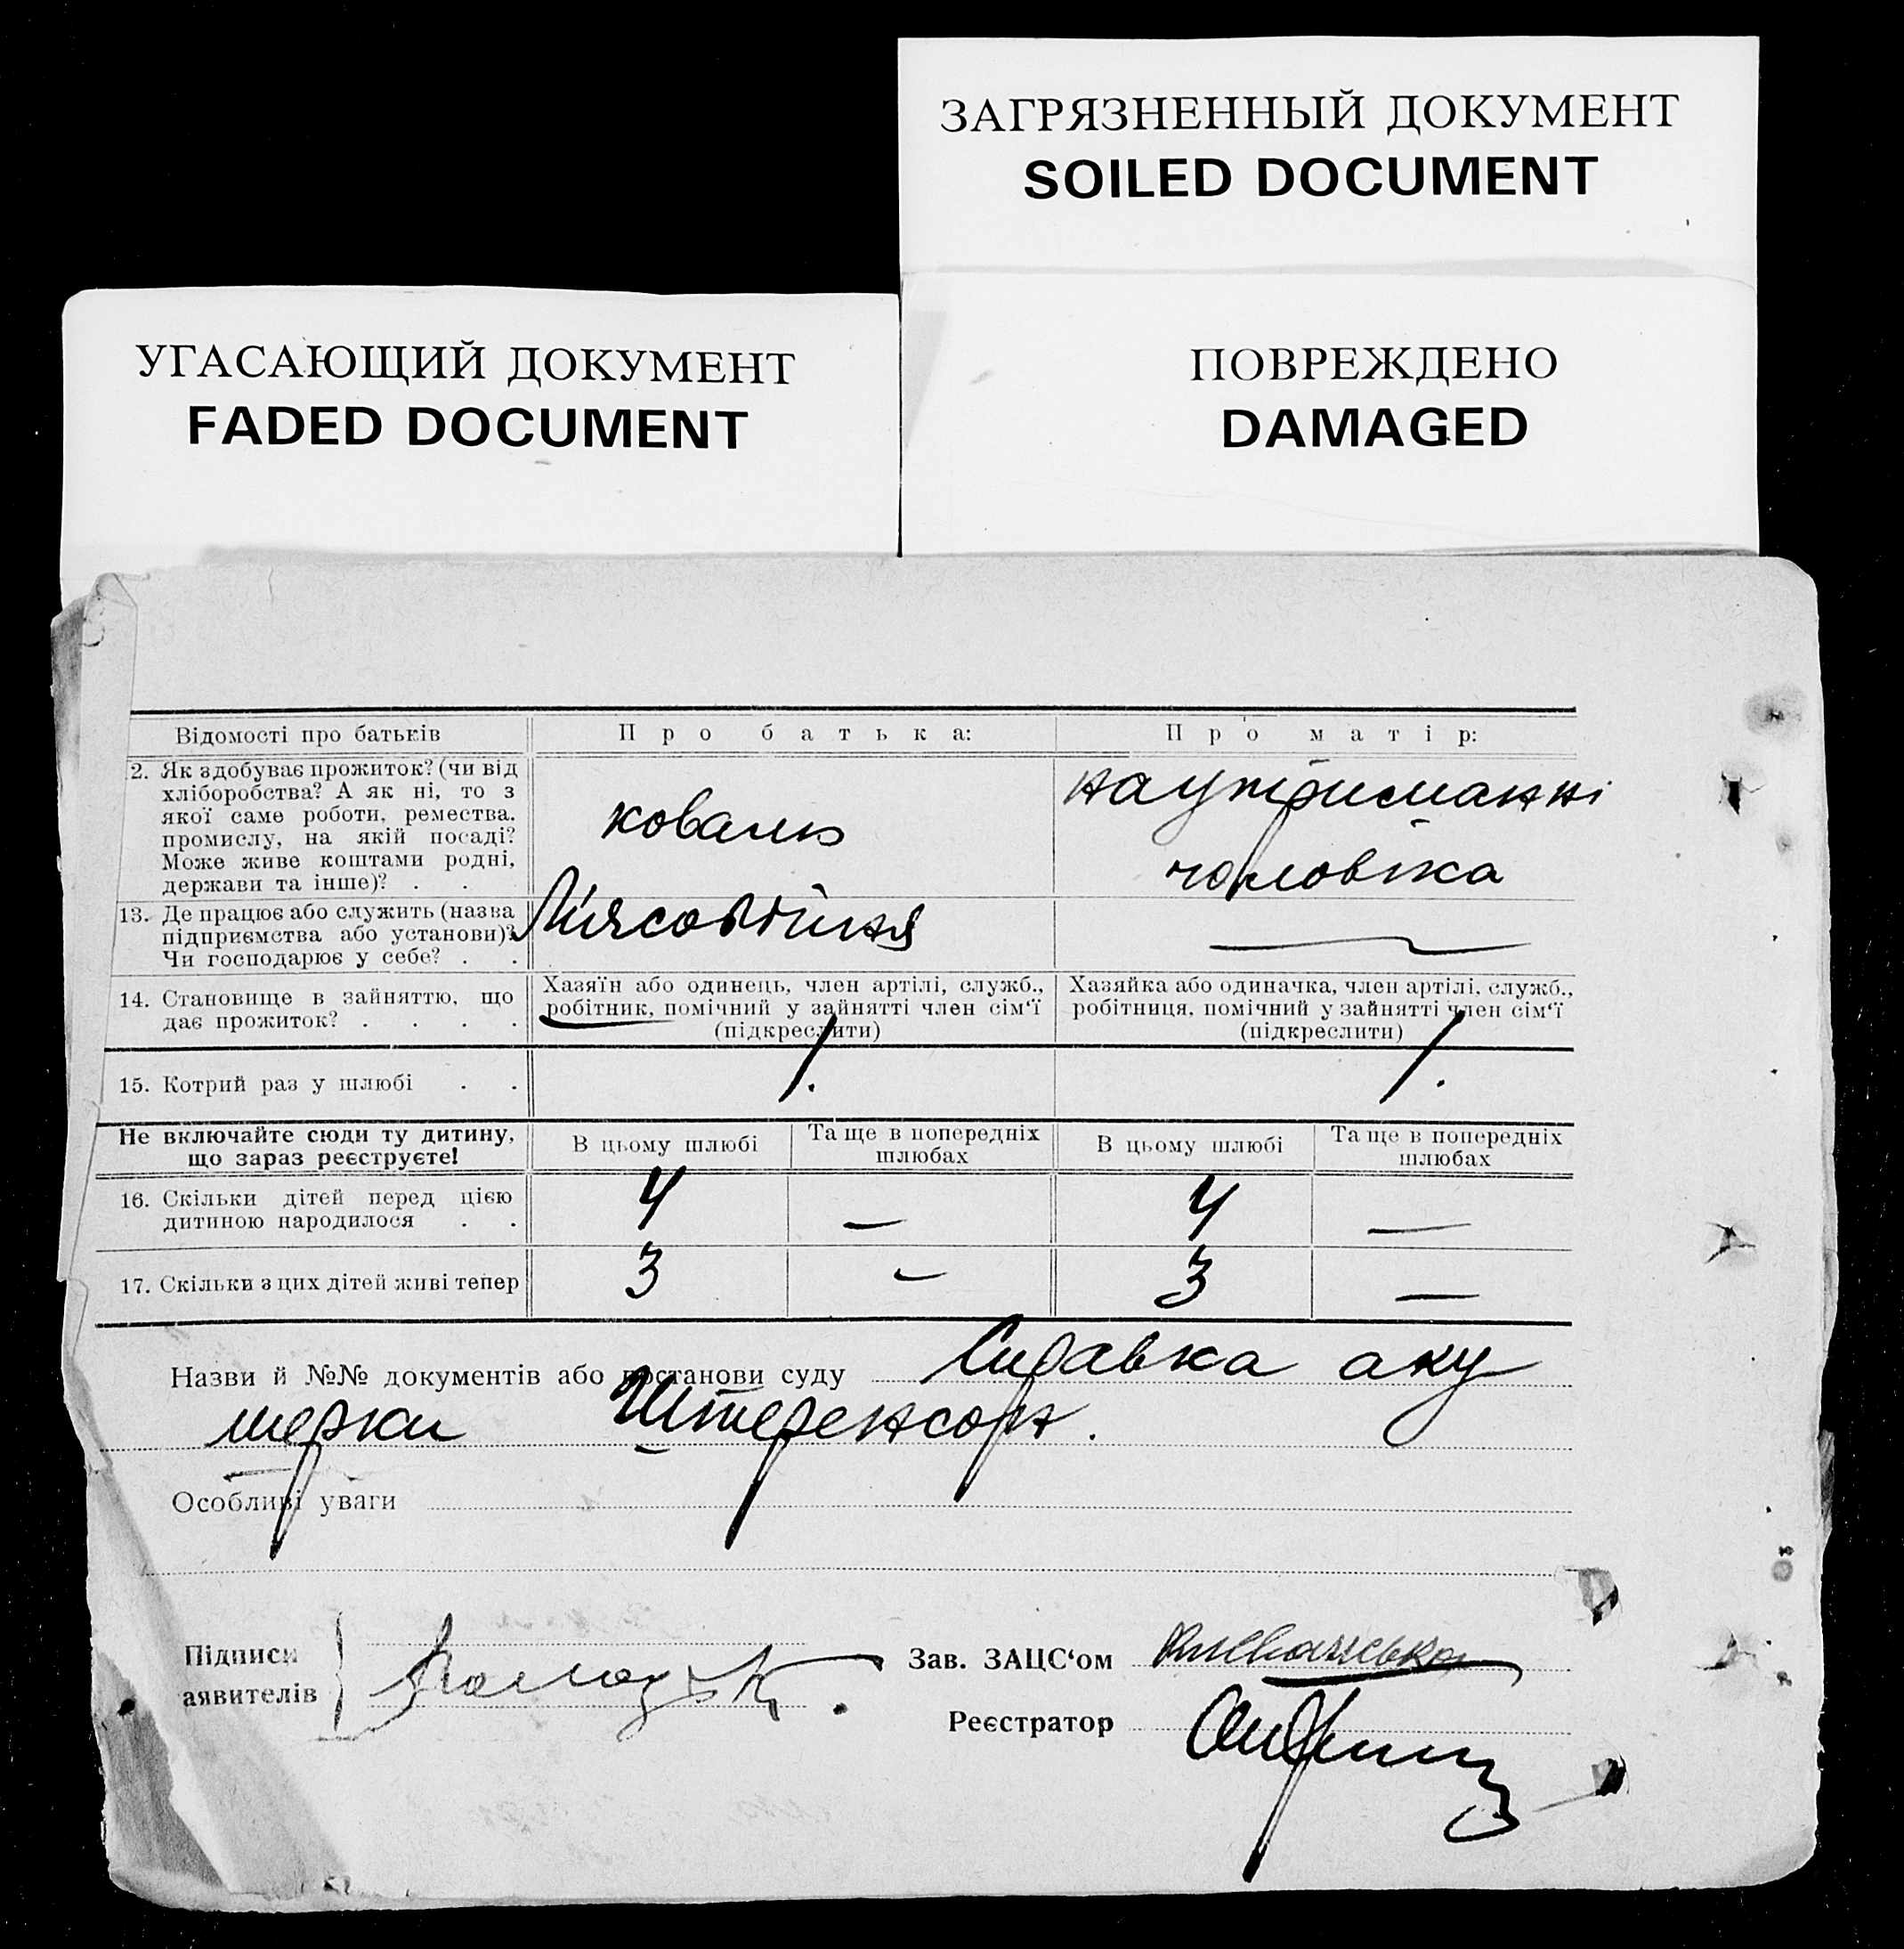 ЗАГРЯЗНЕННЫЙ ДОКУМЕНТ
SOILED DOCUMENT
УГАСАЮЩИЙ ДОКУМЕНТ
FADED DOCUMENT
ПОВРЕЖДЕНО
DAMAGED
Відомості про батьків
Про батька:
Про матір:
2. Як здобуває прожиток? (чи від
хліборобства? А як ні, то з
якої саме роботи, ремества.
промислу, на якій посаді?
Може живе коштами родні,
держави та інше)? . .
коваль
на утриманні
чоловіка
13. Де працює або служить (назва
підприємства або установи)?
Чи господарює у себе? . .
—
14. Становище в зайняттю, що
дає прожиток? . . . .
Хазяїн або одинець, член артілі, служб.,
робітник, помічний у зайнятті член сім‘ї
(підкреслити)
Хазяйка або одиначка, член артілі, служб.,
робітниця, помічний у зайнятті член сім‘ї
(підкреслити)
15. Котрий раз у шлюбі . .
1.
1.
Не включайте сюди ту дитину,
що зараз реєструєте!
В цьому шлюбі
Та ще в попередніх
шлюбах
В цьому шлюбі
Та ще в попередніх
шлюбах
16. Скільки дітей перед цією
дитиною народилося . .
4
—
4
—
17. Скільки з цих дітей живі тепер
3
—
3
—
Назви й №№ документів або постанови суду Справка аку
шерки Штеренсорн.
Особливі уваги
Підписи
аявителів
Зав. ЗАЦС‘ом
Реєстратор